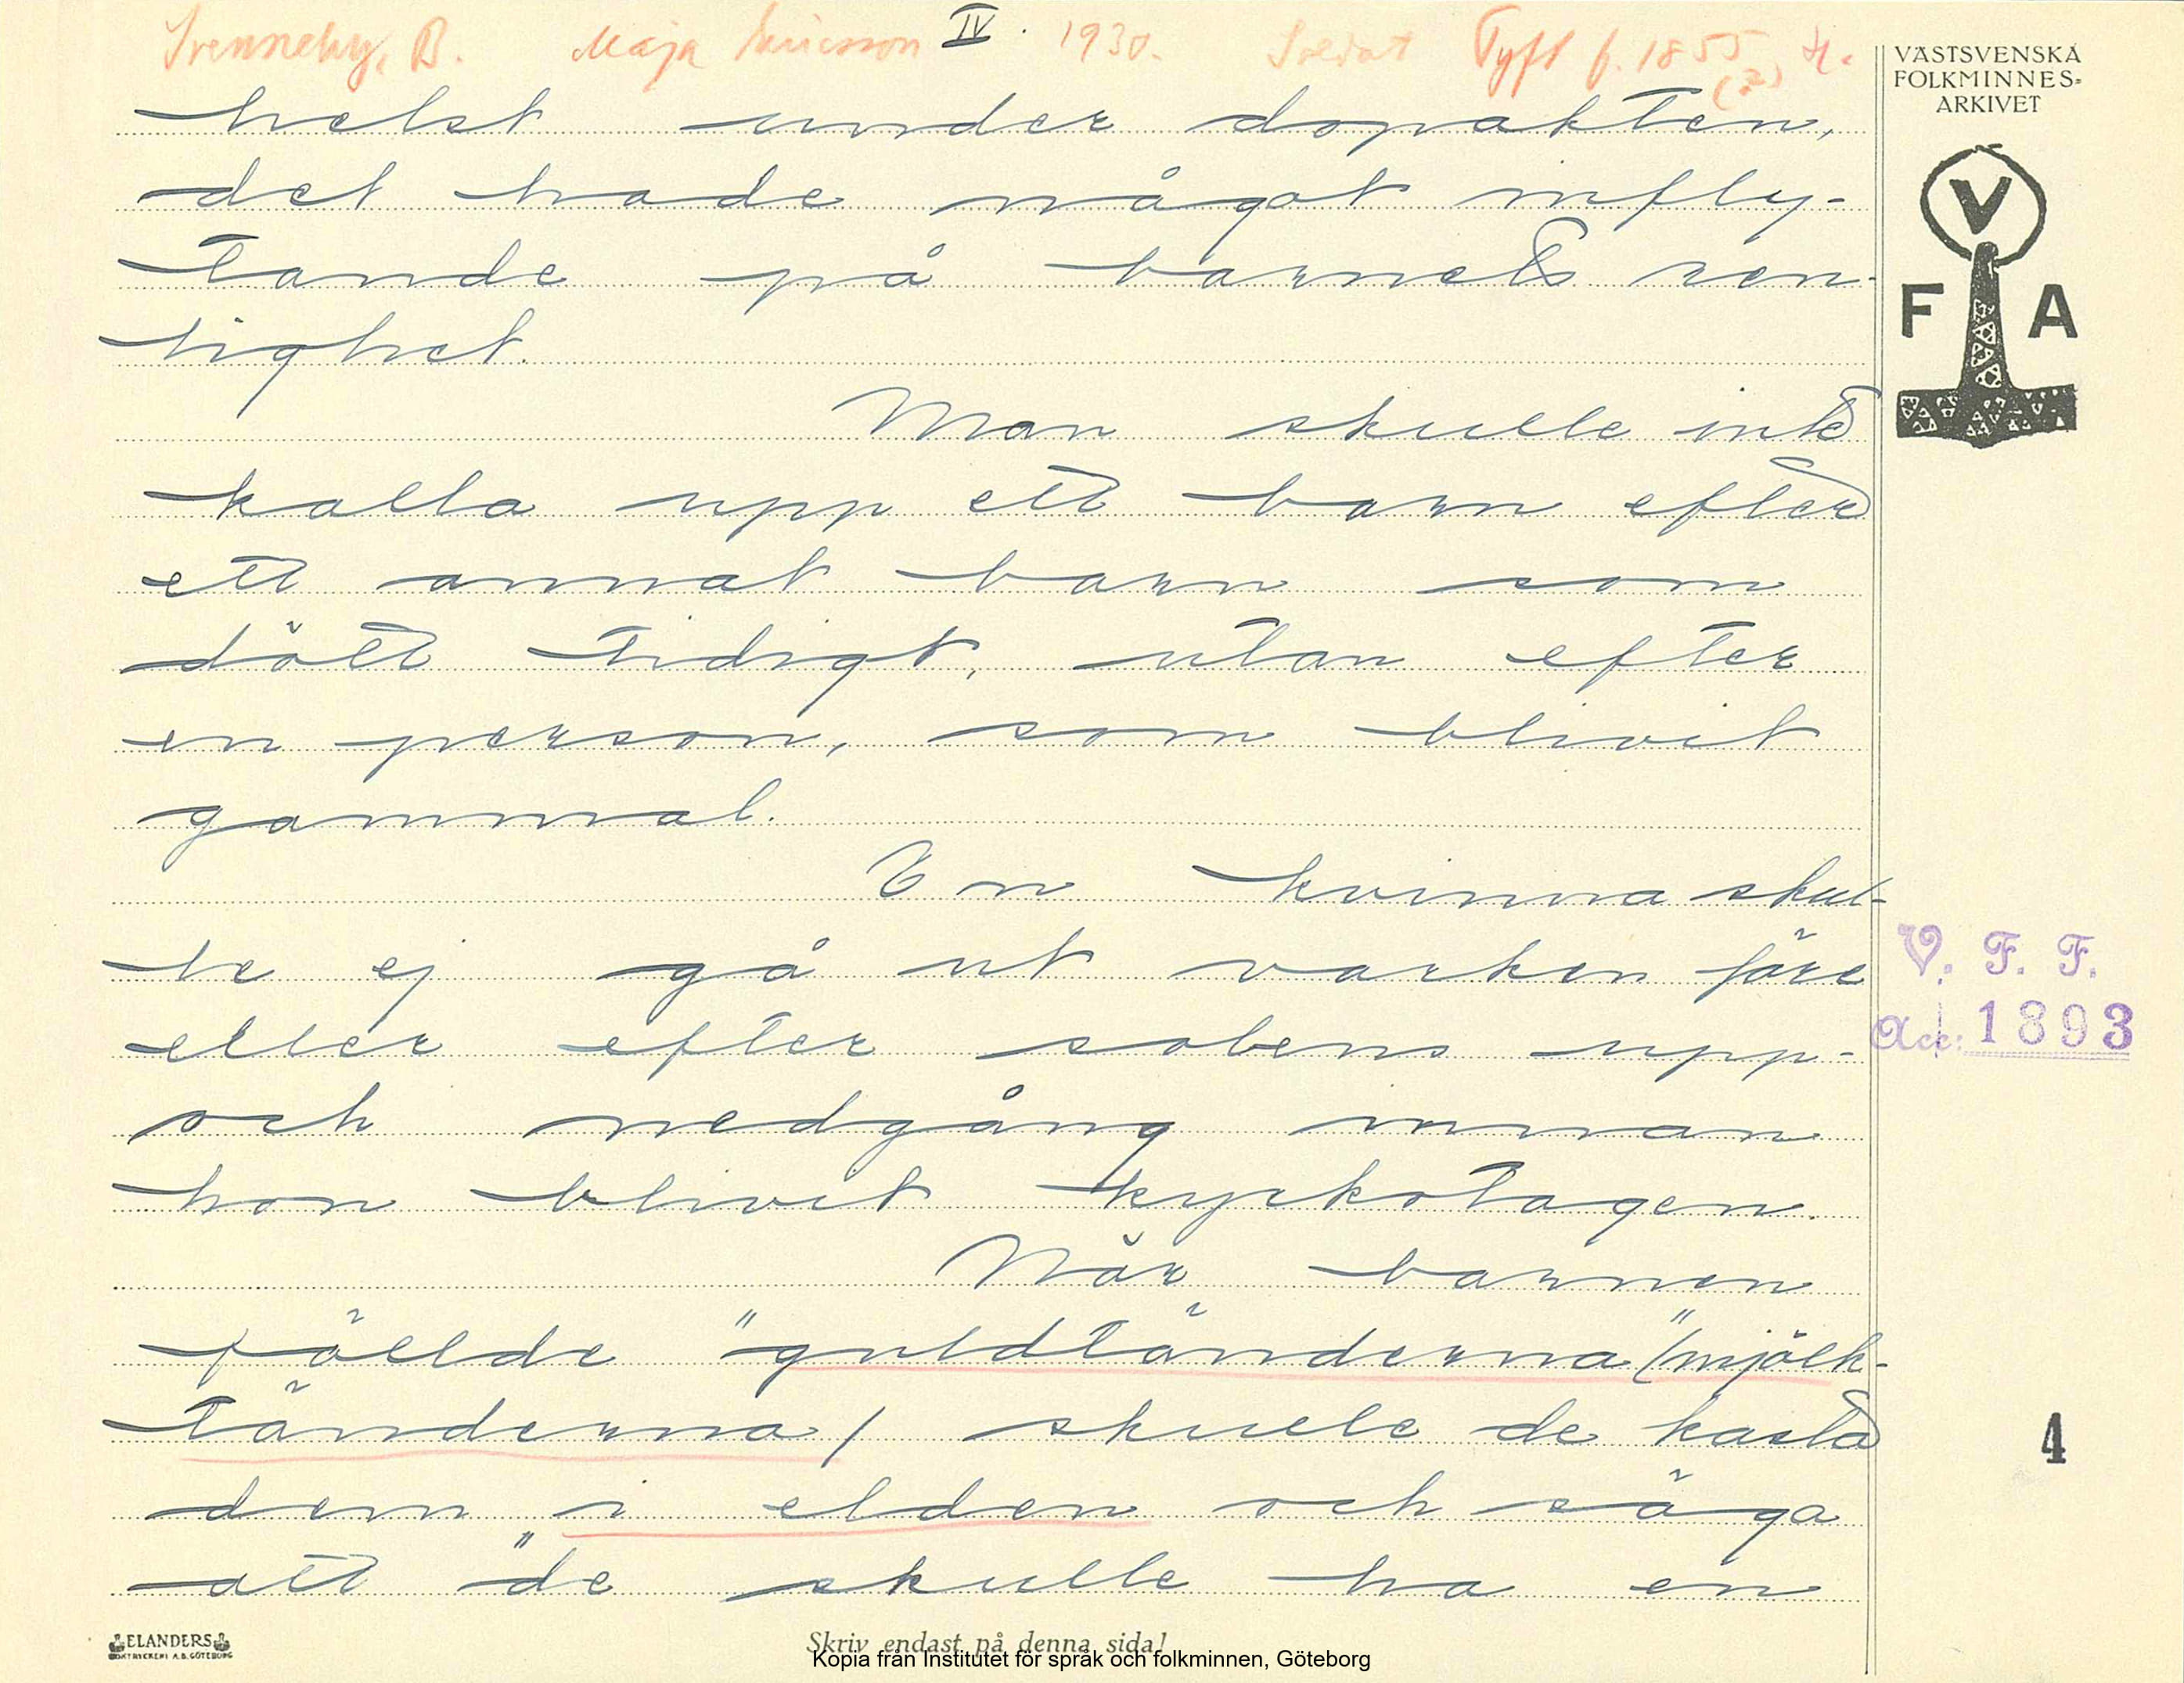 Svenneby, B. Maja Ericsson IV. 1930. Soldat Tyft f. 1855 (?) H.
VÄSTSVENSKA
FOLKMINNES-
ARKIVET
V
F A
helst under dopakten,
det hade något infly-
tande på barnets ren-
lighet.
Man skulle inte
kalla upp ett barn efter
ett annat barn som
dött tidigt, utan efter
en person, som blivit
gammal.
En kvinna skul-
le ej gå ut varken före
eller efter solens upp-
och nedgång innan
hon blivit kyrkotagen.
När barnen
fällde "guldtänderna"/mjölk-
tänderna/ skulle de kasta
dem i elden och säga
att "de skulle ha en
V. F. F.
Acc: 1893
4
ELANDERS
BOKTRYCKERI A.B. GÖTEBORG
Skriv endast på denna sida!
Kopia från Institutet för språk och folkminnen, Göteborg